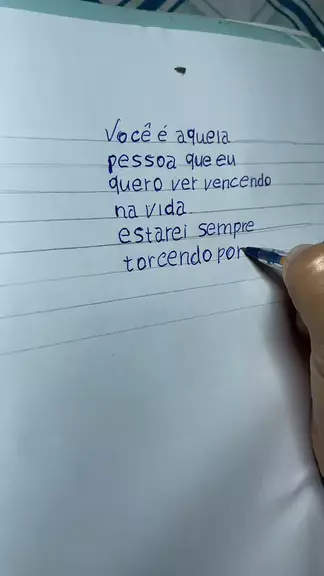 Você é aquela
pessoa que eu
quero ver vencendo
na vida
estarei sempre
torcendo por